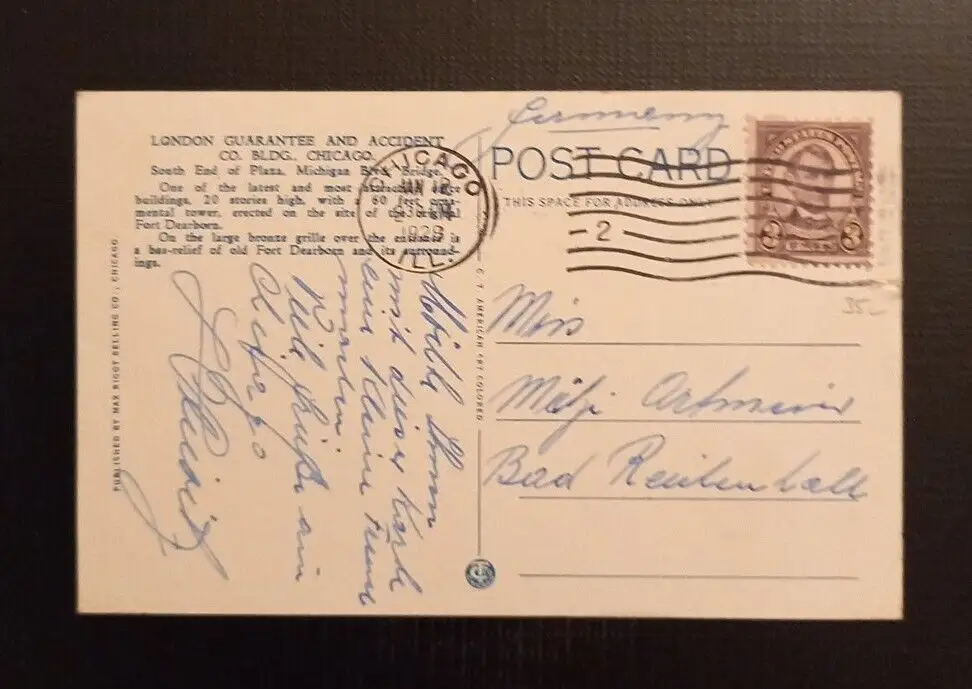 LONDON GUARANTEE AND ACCIDENT
CO. BLDG., CHICAGO.
South End of Plaza, Michigan Blvd. Bridge.
One of the latest and most attractive large
buildings, 20 stories high, with a 60 feet orna-
mental tower, erected on the site of the original
Fort Dearborn.
On the large bronze grille over the entrance is
a bas-relief of old Fort Dearborn and its surround-
ings.
PUBLISHED BY MAX RIGOT SELLING CO., CHICAGO
Möchte Ihnen
mit dieser Karte
eine kleine Freude
machen.
Viele Grüße aus
Chicago
C. T. AMERICAN ART COLORED
Germany
POST CARD
THIS SPACE FOR ADDRESS ONLY
CHICAGO
JAN
1929
ILL.
2
Miss
Mitzi
Bad Reichenhall
35-